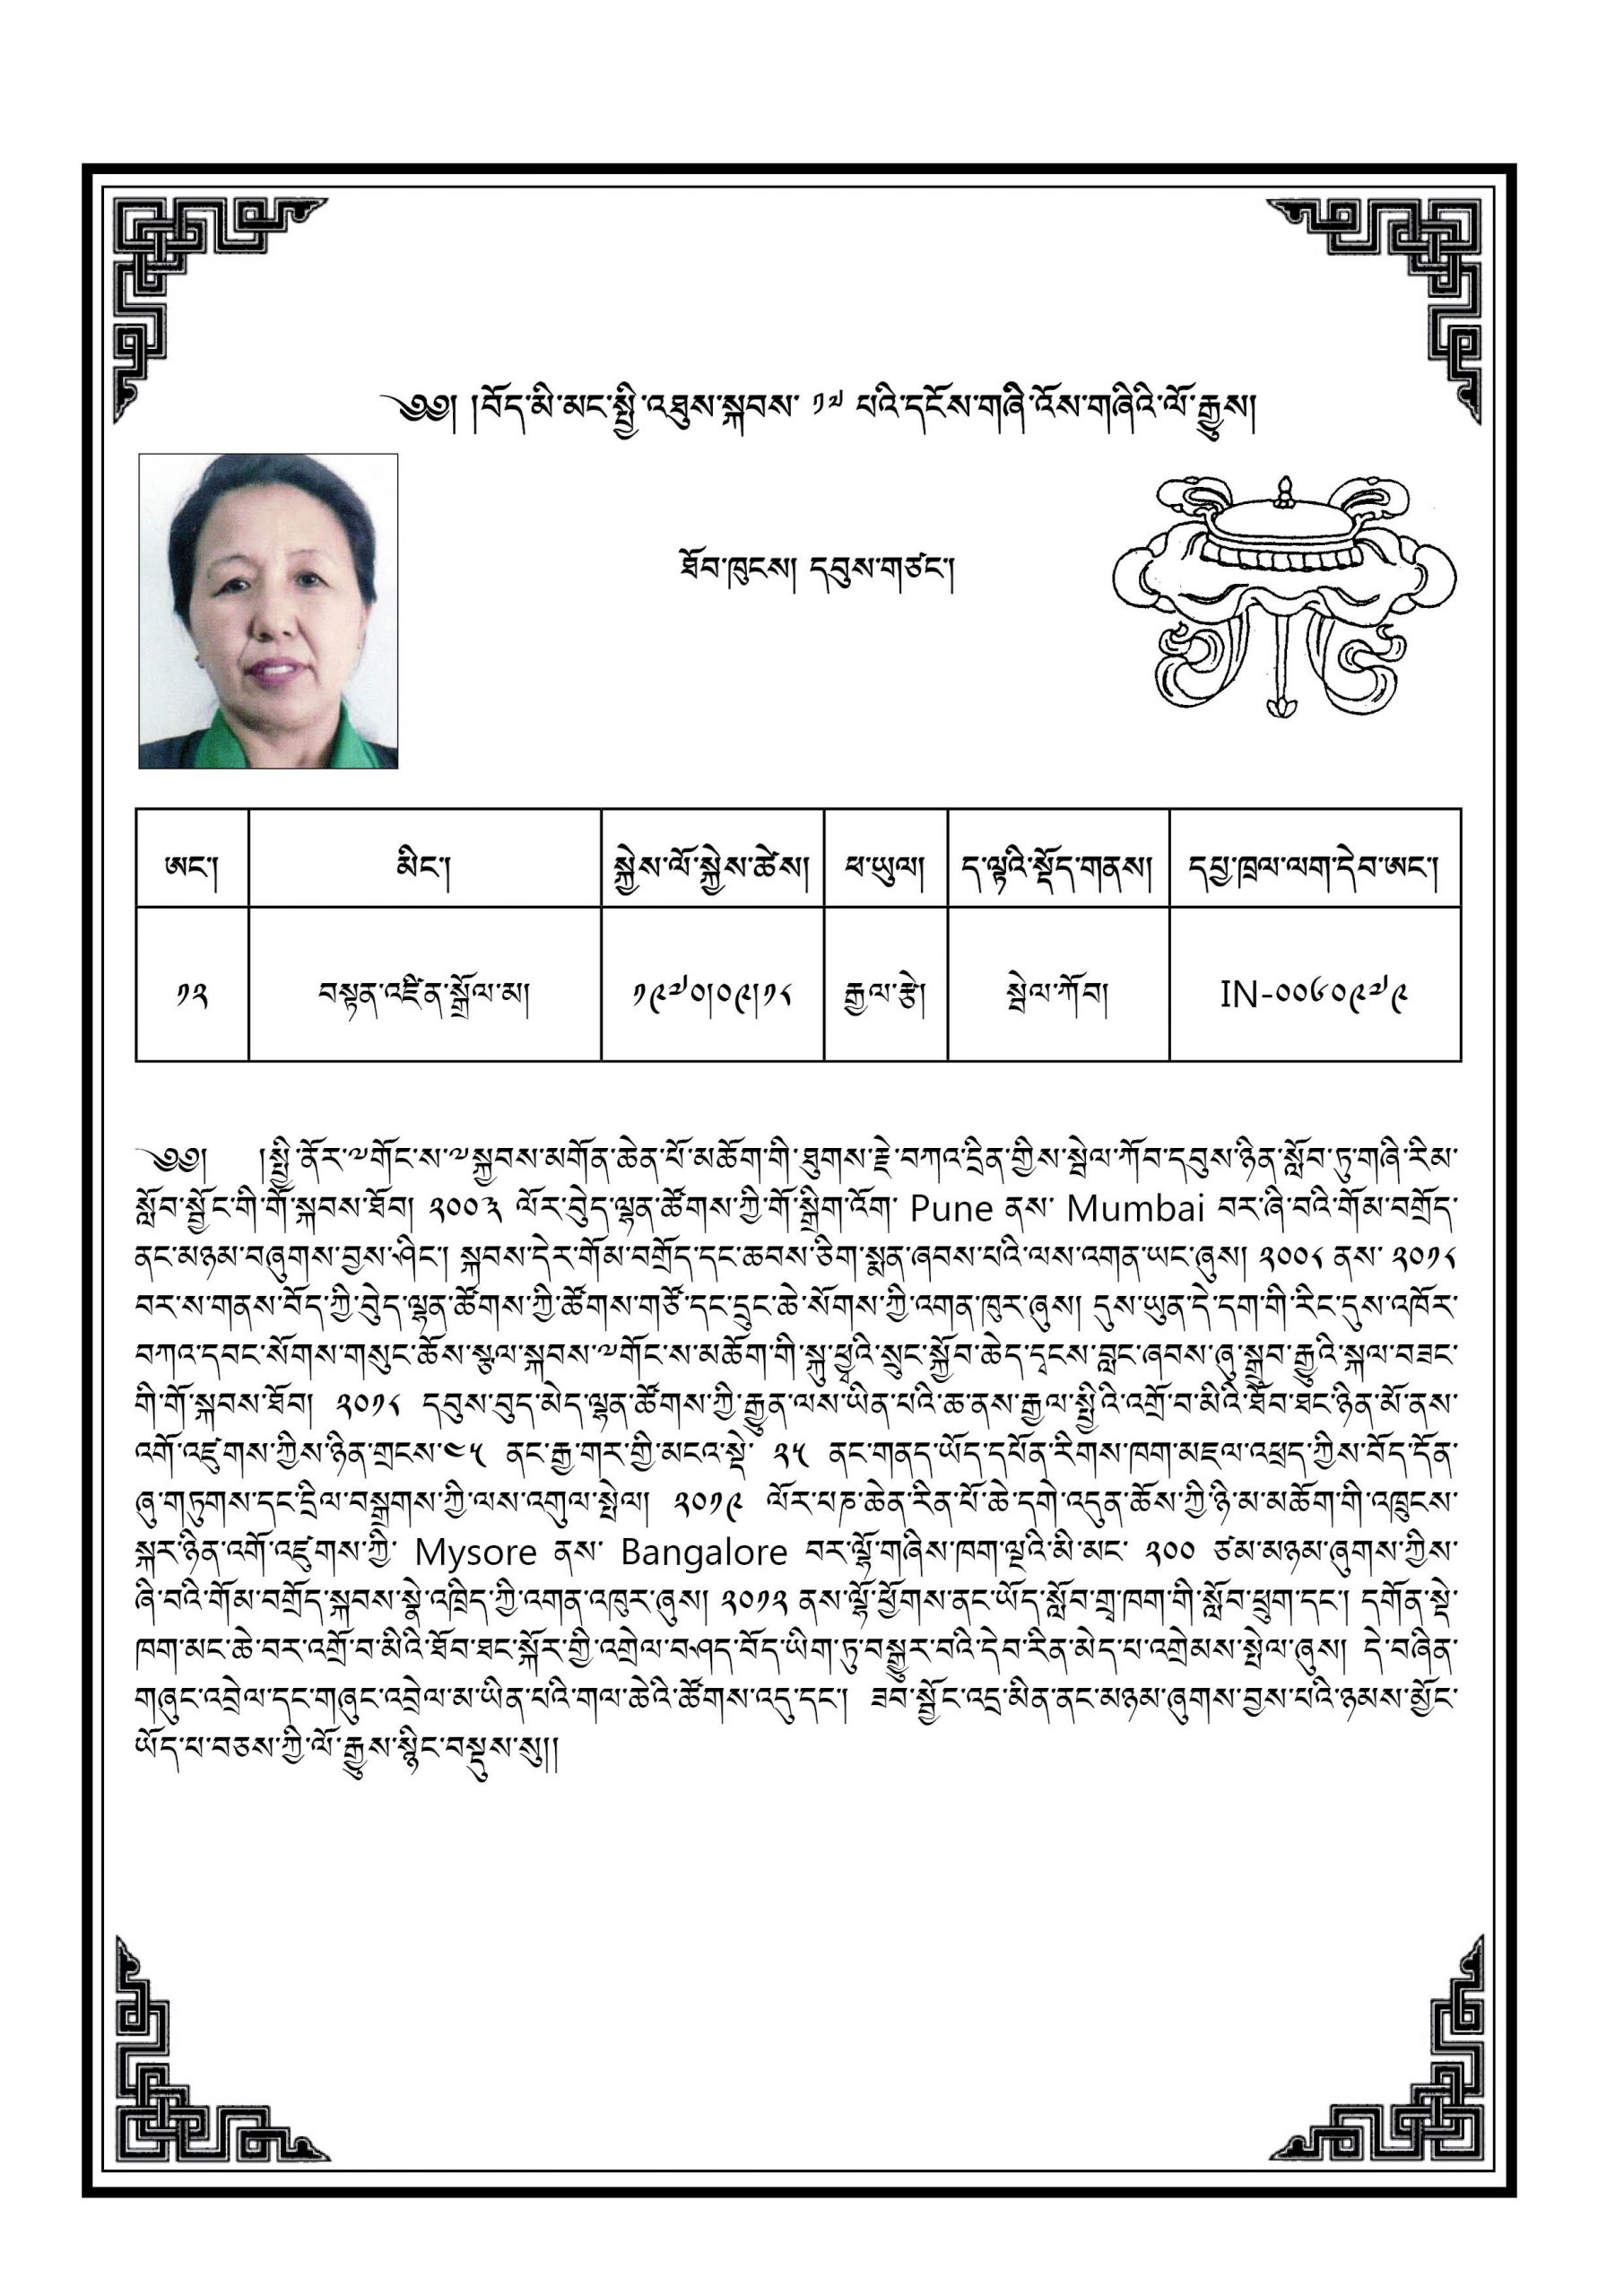 ༄༅། །བོད་མི་མང་སྤྱི་འཐུས་སྐབས་ ༡༧ པའི་དངོས་གཞིི་འོས་གཞིའི་ལོ་རྒྱུས།
ཐོབ་ཁུངས། དབུས་གཙང་།
ཨང་། མིང་། སྐྱེས་ལོ་སྐྱེས་ཚེས། ཕ་ཡུལ། ད་ལྟའི་སྡོད་གནས། དཔྱ་ཁྲལ་ལག་དེབ་ཨང་།
༡༢ བསྟན་འཛིན་སྒྲོལ་མ། ༡༩༧༠།༠༩།༡༨ རྒྱལ་རྩེ། སྦེལ་ཀོབ། IN-༠༠༦༠༩༧༩
༄༅། །སྤྱི་ནོར་༧གོང་ས་༧སྐྱབས་མགོན་ཆེན་པོ་མཆོག་གི་ཐུགས་རྗེ་བཀའ་དྲིན་གྱིས་སྦེལ་ཀོབ་དབུས་ཉིན་སློབ་ཏུ་གཞི་རིམ་
སློབ་སྦྱོང་གི་གོ་སྐབས་ཐོབ། ༢༠༠༣ ལོར་བེུད་ལྷན་ཚོགས་ཀྱི་གོ་སྒྲིག་འོག་ Pune ནས་ Mumbai བར་ཞི་བའི་གོམ་བགྲོད་
ནང་མཉམ་བཞུགས་བྱས་ཤིང་། སྐབས་དེར་གོམ་བགྲོད་དང་ཆབས་ཅིག་སྨན་ཞབས་པའི་ལས་འགན་ཡང་ཞུས། ༢༠༠༨ ནས་ ༢༠༡༨
བར་ས་གནས་བོད་ཀྱི་བེུད་ལྷན་ཚོགས་ཀྱི་ཚོགས་གཙོ་དང་དྲུང་ཆེ་སོགས་ཀྱི་འགན་ཁུར་ཞུས། དུས་ཡུན་དེ་དག་གི་རིང་དུས་འཁོར་
བཀའ་དབང་སོགས་གསུང་ཆོས་སྩལ་སྐབས་༧གོང་ས་མཆོག་གི་སྐུ་ཕྱྭའི་སྲུང་སྐྱོབ་ཆེད་དྭངས་བླང་ཞབས་ཞུ་སྒྲུབ་རྒྱུའི་སྐལ་བཟང་
གི་གོ་སྐབས་ཐོབ། ༢༠༡༨ དབུས་བུད་མེད་ལྷན་ཚོགས་ཀྱི་རྒྱུན་ལས་ཡིན་པའི་ཆ་ནས་རྒྱལ་སྤྱིའི་འགྲོ་བ་མིའི་ཐོབ་ཐང་ཉིན་མོ་ནས་
འགོ་འཛུགས་ཀྱིས་ཉིན་གྲངས་༤༥ ནང་རྒྱ་གར་གྱི་མངའ་སྡེ་ ༢༥ ནང་གནད་ཡོད་དཔོན་རིགས་ཁག་མཇལ་འཕྲད་ཀྱིས་བོད་དོན་
ཞུ་གཏུགས་དང་དྲིལ་བསྒྲགས་ཀྱི་ལས་འགུལ་སྤེལ། ༢༠༡༩ ལོར་པཎ་ཆེན་རིན་པོ་ཆེ་དགེ་འདུན་ཆོས་ཀྱི་ཉི་མ་མཆོག་གི་འཁྲུངས་
སྐར་ཉིན་འགོ་འཛུགས་ཀྱི་ Mysore ནས་ Bangalore བར་ལྷོ་གཞིས་ཁག་ལྔའི་མི་མང་ ༢༠༠ ཙམ་མཉམ་ཞུགས་ཀྱིས་
ཞི་བའི་གོམ་བགྲོད་སྐབས་སྣེ་འཁྲིད་ཀྱི་འགན་འཁུར་ཞུས། ༢༠༡༢ ནས་ལྷོ་ཕྱོགས་ནང་ཡོད་སློབ་གྲྭ་ཁག་གི་སློབ་ཕྲུག་དང་། དགོན་སྡེ་
ཁག་མང་ཆེ་བར་འགྲོ་བ་མིའི་ཐོབ་ཐང་སྐོར་གྱི་འགྲེལ་བཤད་བོད་ཡིག་ཏུ་བསྒྱུར་བའི་དེབ་རིན་མེད་པ་འགྲེམས་སྤེལ་ཞུས། དེ་བཞིན་
གཞུང་འབྲེལ་དང་གཞུང་འབྲེལ་མ་ཡིན་པའི་གལ་ཆེའི་ཚོགས་འདུ་དང་། ཟབ་སྦྱོང་འདྲ་མིན་ནང་མཉམ་ཞུགས་བྱས་པའི་ཉམས་མྱོང་
ཡོད་པ་བཅས་ཀྱི་ལོ་རྒྱུས་སྙིང་བསྡུས་སུ།།